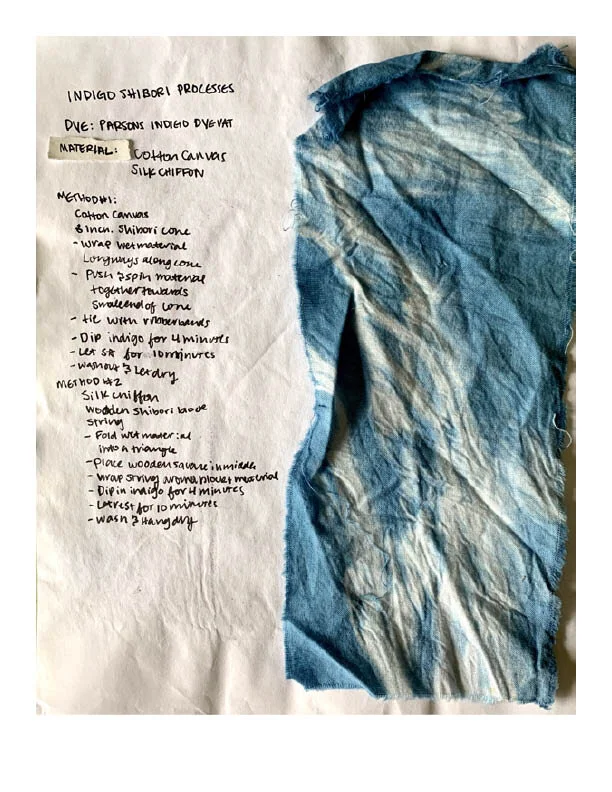 INDIGO SHIBORI PROCESSES
DYE: PARSONS INDIGO DYEVAT
MATERIAL: Cotton Canvas
SILK CHIFFON
METHOD #1:
Cotton Canvas
8 inch. Shibori cone
- Wrap wet material
Longways along cone
- Push & spin material
together towards
small end of cone
- tie with rubberbands
- Dip indigo for 4 minutes
- Let sit for 10 minutes
- Wash out & Let dry
METHOD #2
Silk chiffon
Wooden Shibori
String
- Fold wet material
into a triangle
- Place wooden square in middle
- Wrap string around block & material
- Dip in indigo for 4 minutes
- Let rest for 10 minutes
- Wash & Hang dry